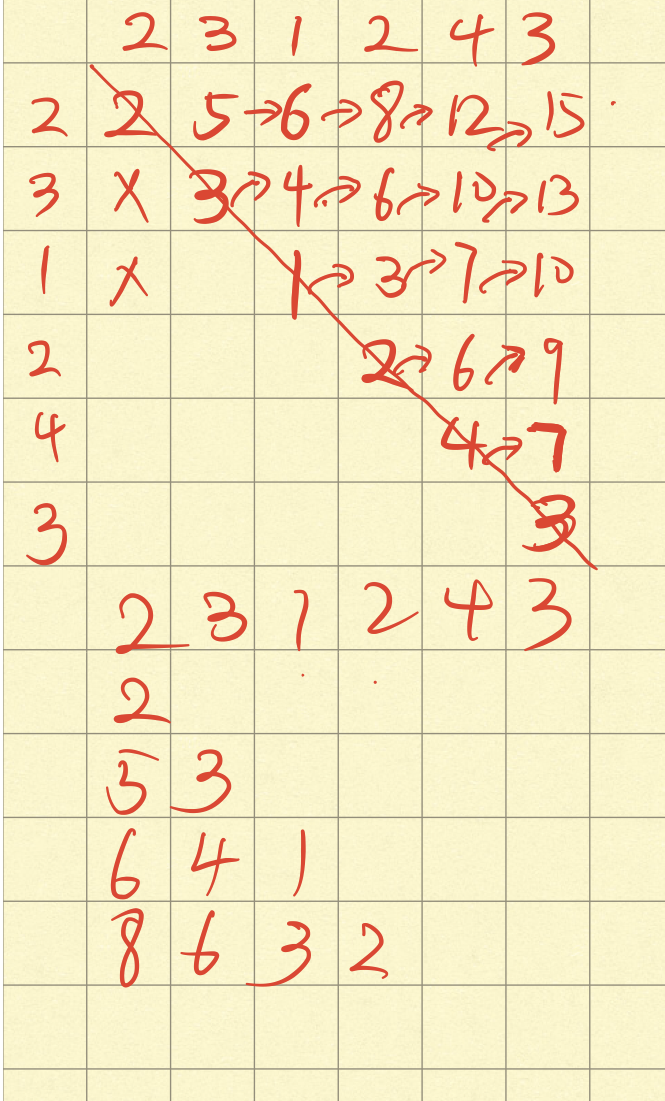 2 3 1 2 4 3
2 2 5 → 6 → 8 → 12 → 15
3 X 3 → 4 → 6 → 10 → 13
1 X 1 → 3 → 7 → 10
2 2 → 6 → 9
4 4 → 7
3 3
2 3 1 2 4 3
2
5 3
6 4 1
8 6 3 2